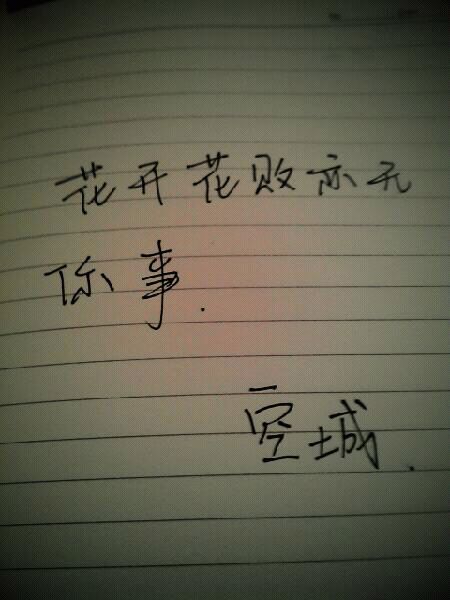 花开花败亦无
你事.
一空城.